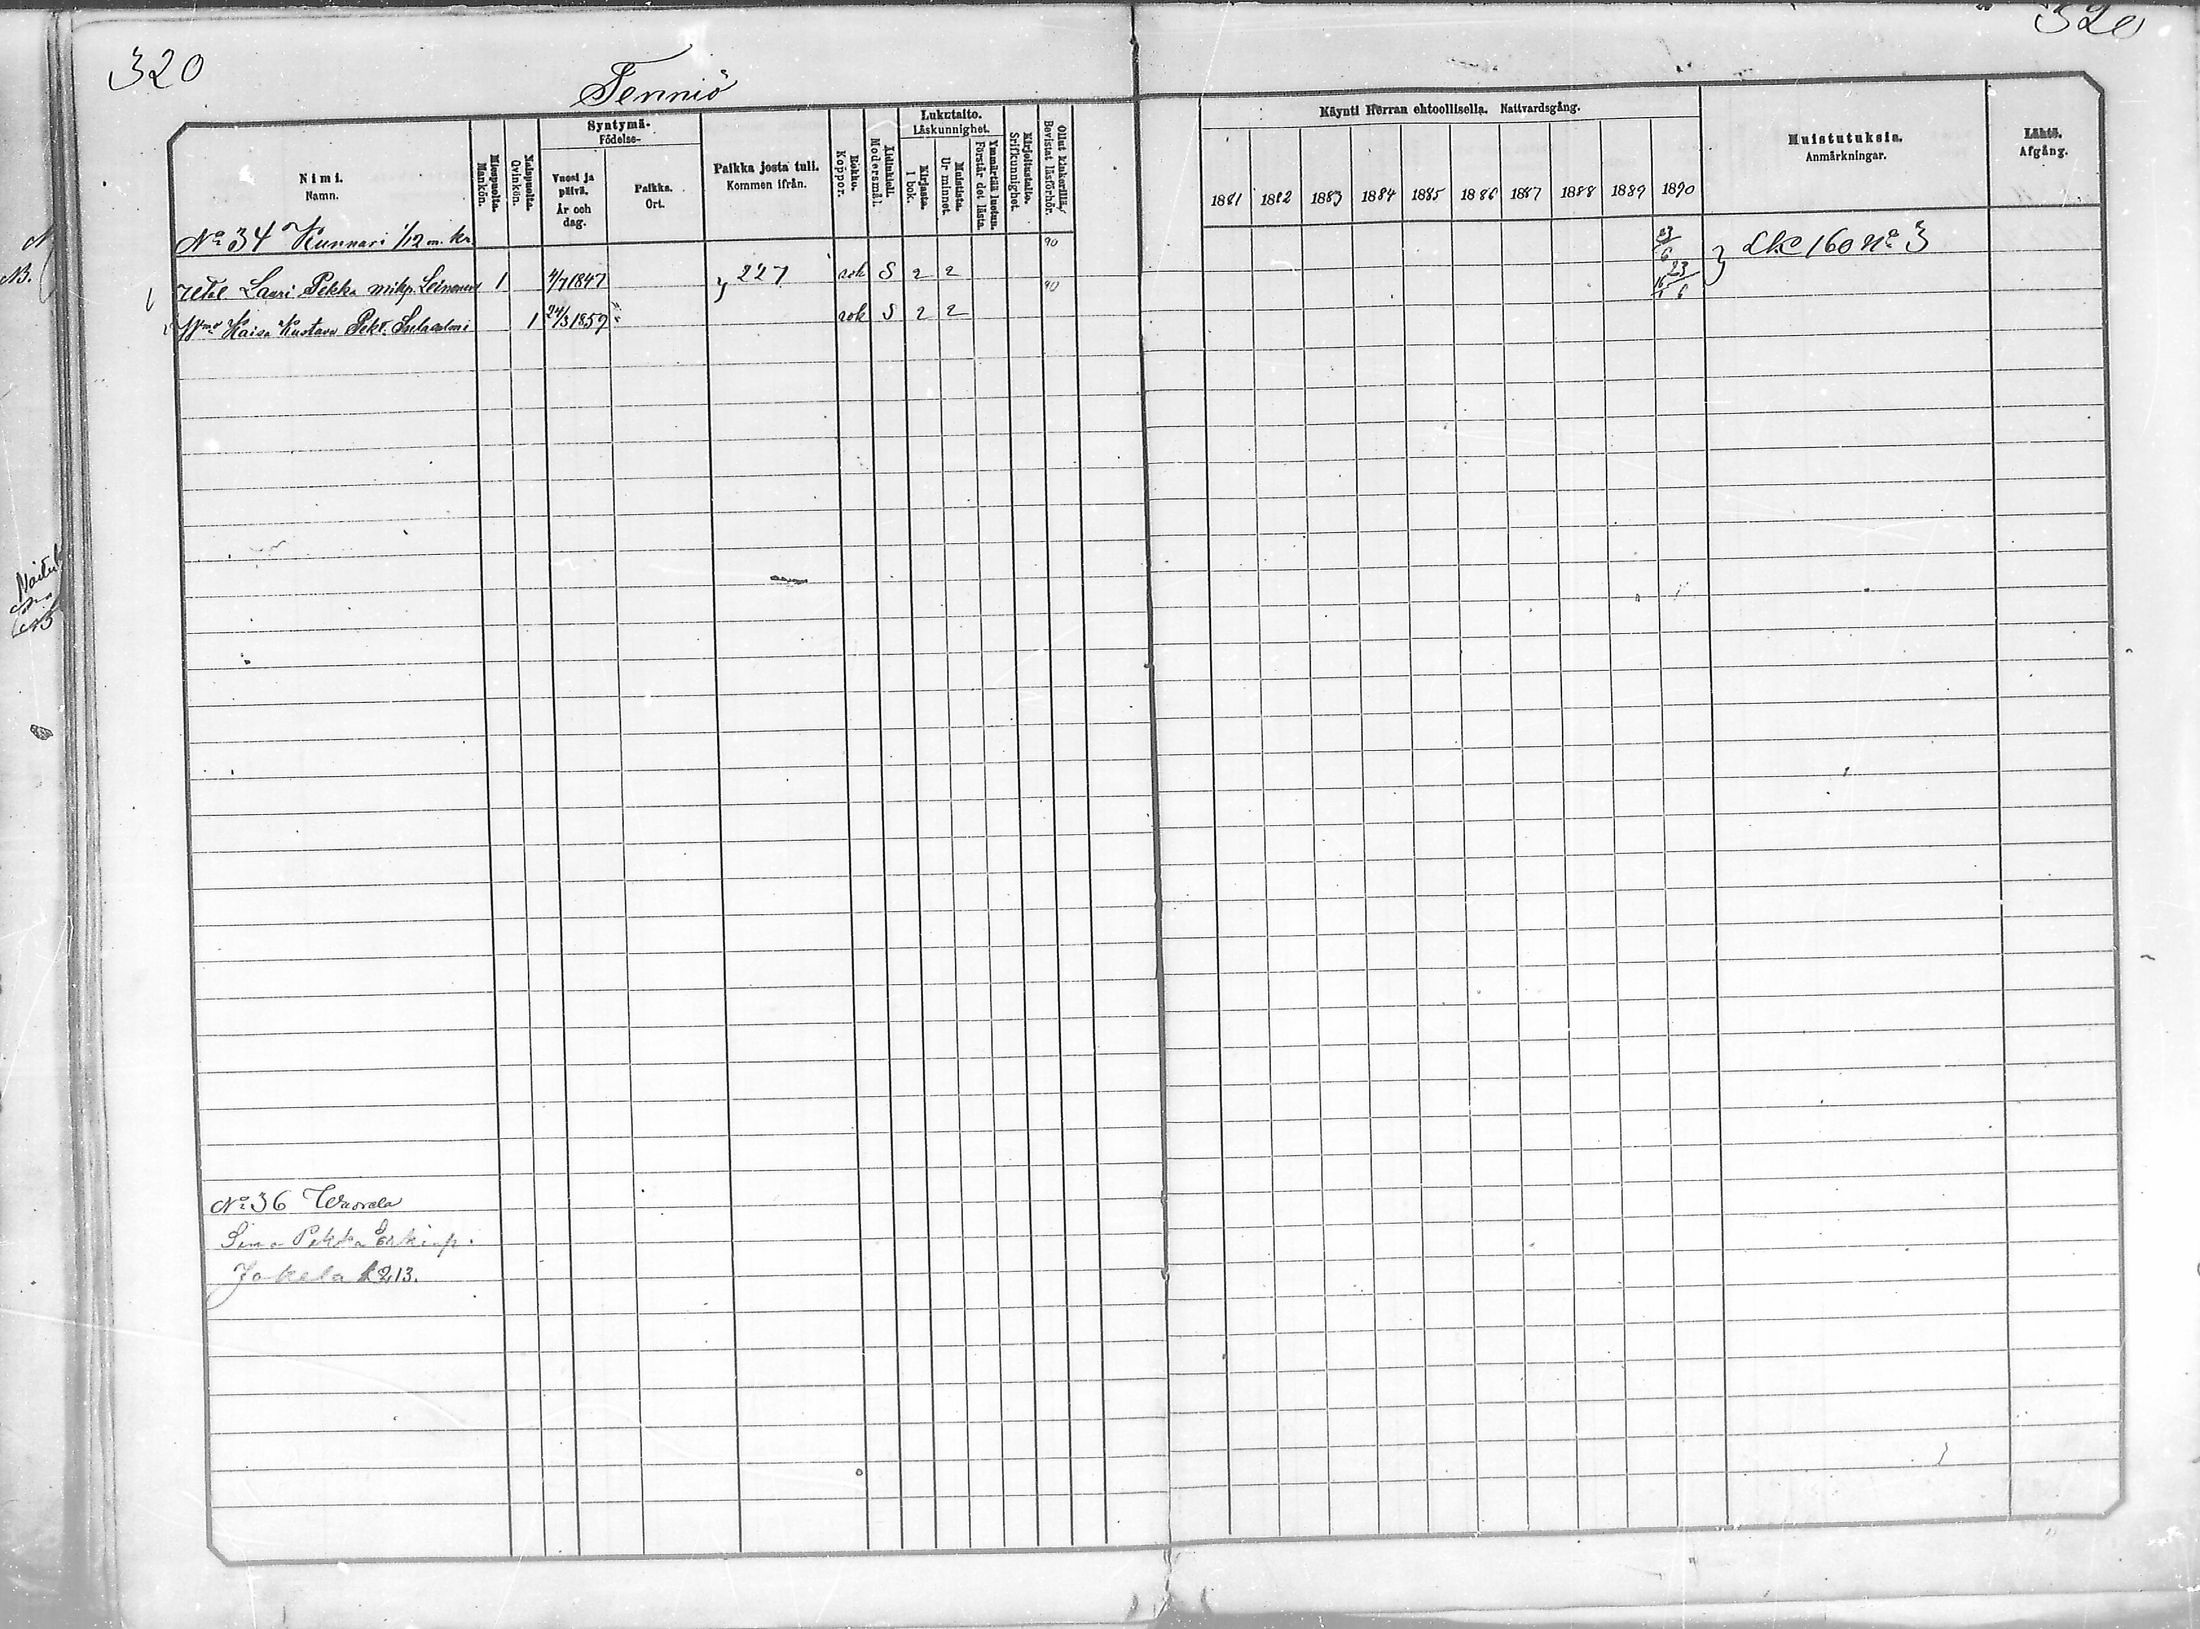 320
320
Tenniö
Nimi.
Namn.
Miespuolia.
Mankön.
Naispuolia.
Qvinkön.
Syntymä-
Födelse-
Vuosi ja päivä.
År och dag.
Paikka.
Ort.
Paikka josta tuli.
Kommen ifrån.
Rokko.
Koppor.
Äidinkieli.
Modersmål.
Lukutaito.
Läskunnighet.
Kirjasta.
I bok.
Muistista.
Ur minnet.
Ymmärtää luetun.
Förstår det lästa
Kirjoitustaito.
Srifkunnighet.
Ollut kinkerillä.
Bevistat läsförhör.
Käynti Herran ehtoollisella. Nattvardsgång.
1881 1882 1883 1884 1885 1886 1887 1888 1889 1890
Muistutuksia.
Anmärkningar.
Lähtö.
Afgång.
No 34 Kunnari 1/12 m. kr. 90 23/6
Lauri Pekka mikp. Leinonen 1 4/7 1847 } 227 rok S 2 2 90 23/6 } Lk 160 No 3
Wmo Kaisa Kustava Pekt. 1 24/3 1859 " rok S 2 2
No 36
Pekka Erkinp.
Jokela 213.